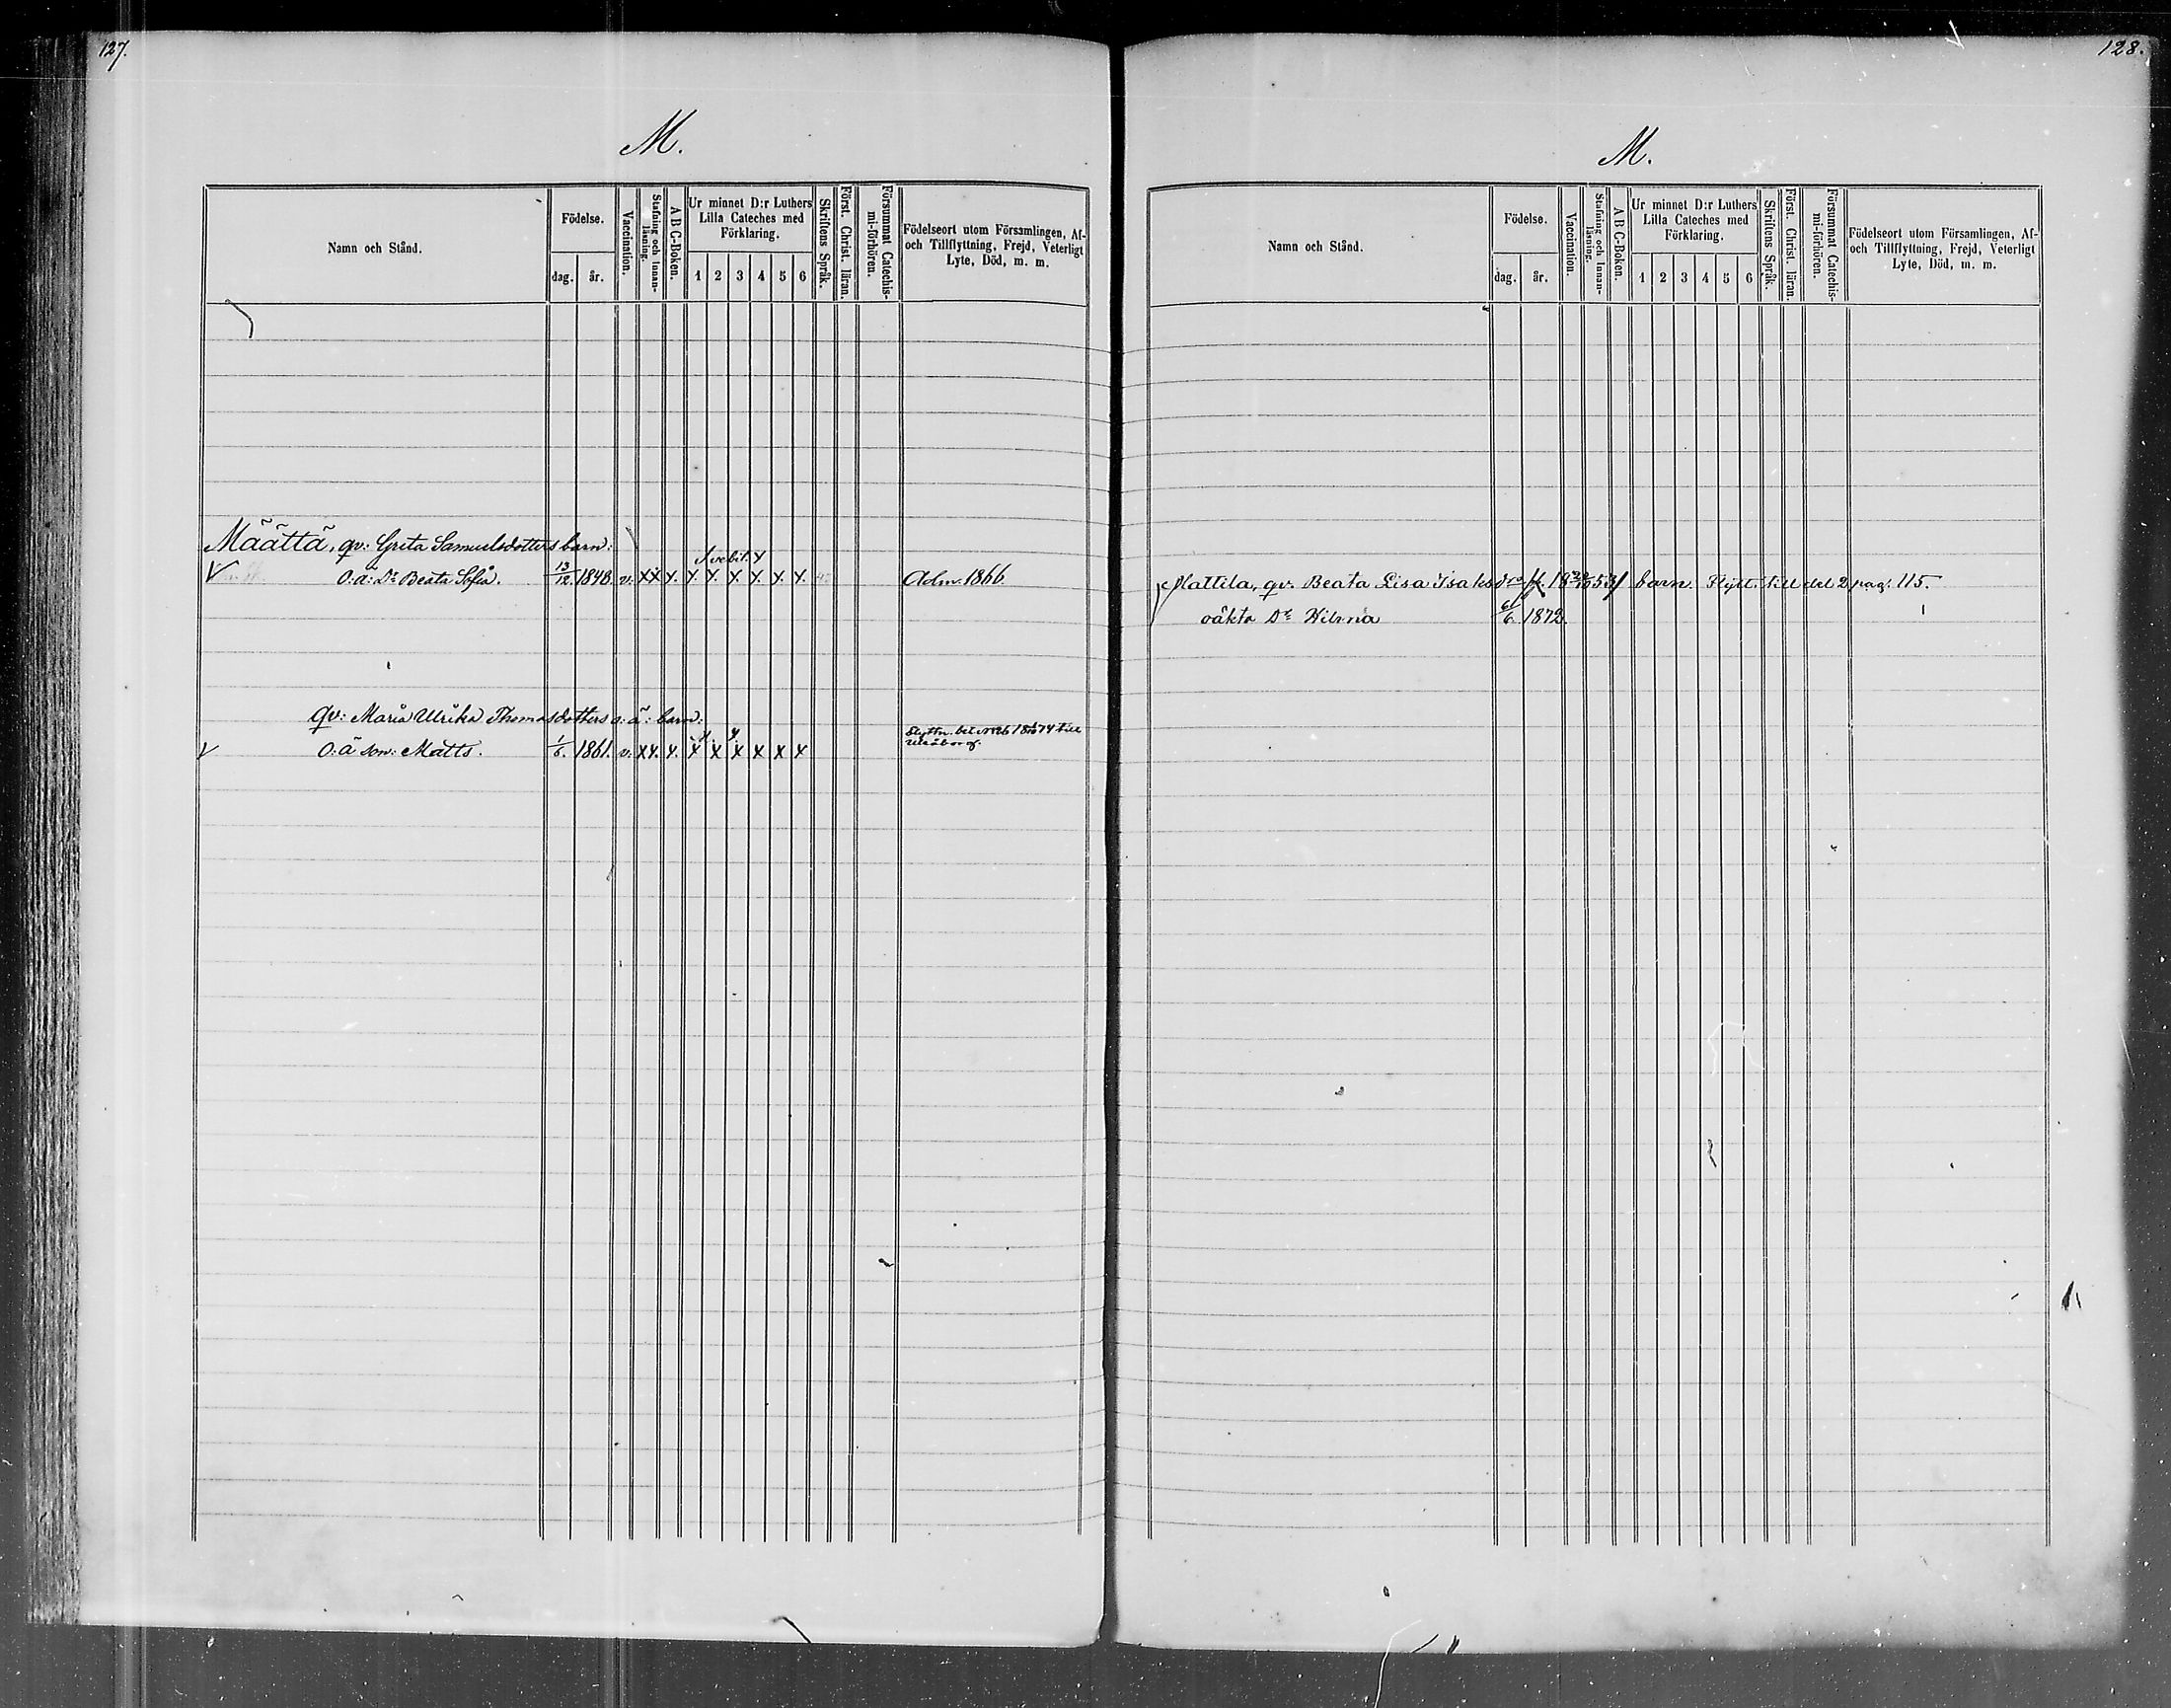 127.
M.
Namn och Stånd.
Födelse.
dag. år.
Vaccination.
Stafning och Innan-läsning.
A B C-Boken.
Ur minnet D:r Luthers
Lilla Cateches med
Förklaring.
1 2 3 4 5 6
Skriftens Språk.
Först. Christ. läran.
Försummat Catechis-
mi-förhören.
Födelseort utom Församlingen, Af-
och Tillflyttning, Frejd, Veterligt
Lyte, Död, m. m.
Määttä, qv: Greta Samuelsdotters barn:
Svebil. x
O: ä: Dr Beata Sofia. 13/12. 1848. v. x x x. x. x. x. x. x. x. Adm. 1866.
qv: Maria Ulrika Thomasdotters o: ä: barn:
O: ä son: Matts. 1/6. 1861. v. x x. x. x x x x x x
Uleåborg.
128.
M.
Namn och Stånd.
Födelse.
dag. år.
Vaccination.
Stafning och Innan-
läsning.
A B C-Boken.
Ur minnet D:r Luthers
Lilla Cateches med
Förklaring.
1 2 3 4 5 6
Skriftens Språk.
Först. Christ. läran.
Försummat Catechis-
mi-förhören.
Födelseort utom Församlingen, Af-
och Tillflyttning, Frejd, Veterligt
Lyte, Död, m. m.
Mattila, qv. Beata Lisa Isaks dr barn. Flytt. till del 2 pag. 115.
oäkta Dr 1872.